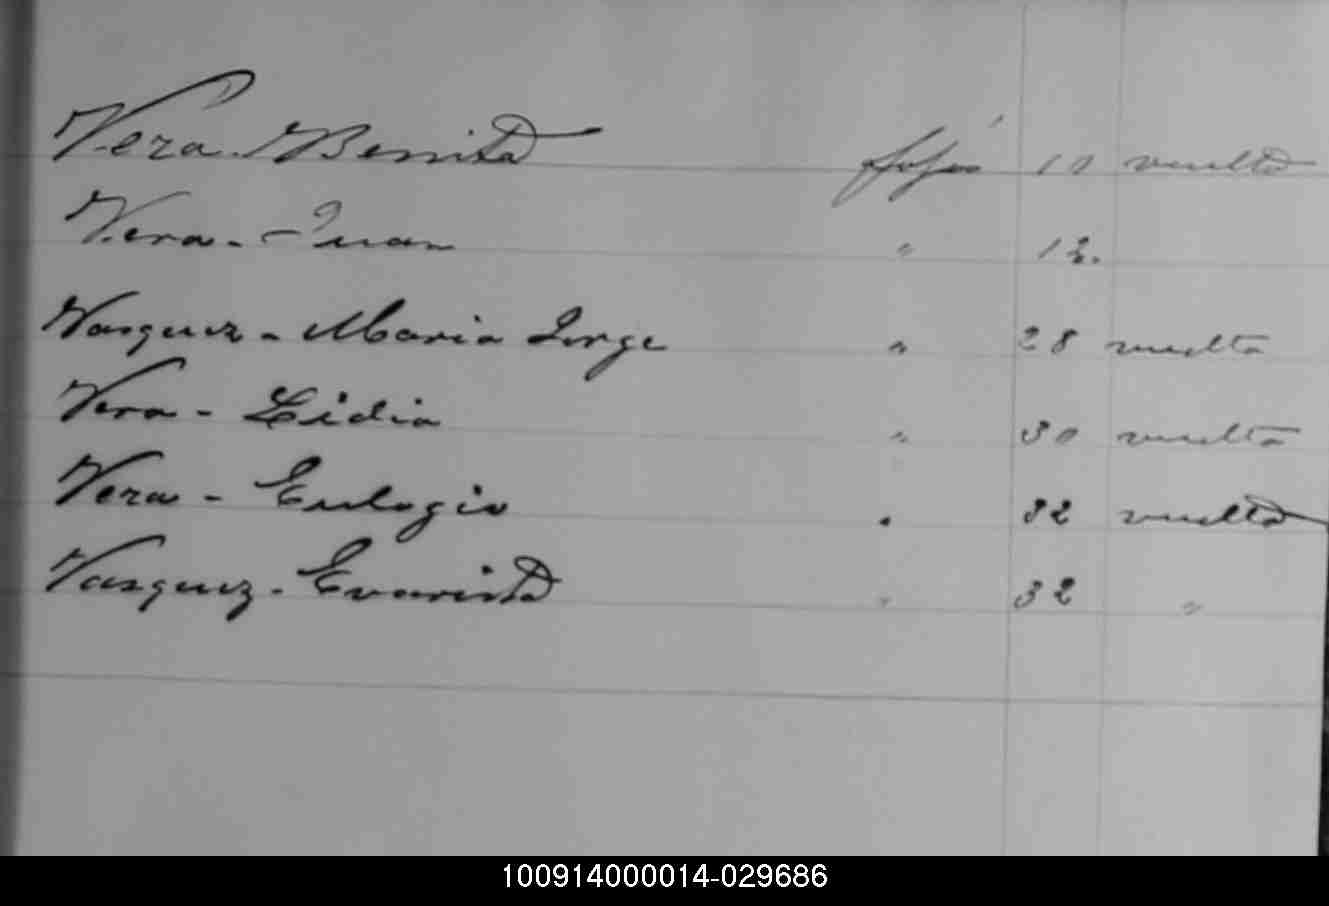 Vera. Benita fojas 11 vuelta
Vera - Juan " 12.
Vasquez - Maria Jorge " 28 vuelta
Vera - Lidia " 30 vuelta
Vera - Eulogio " 32 vuelta
Vasquez - Evarista " 32 "
100914000014-029686